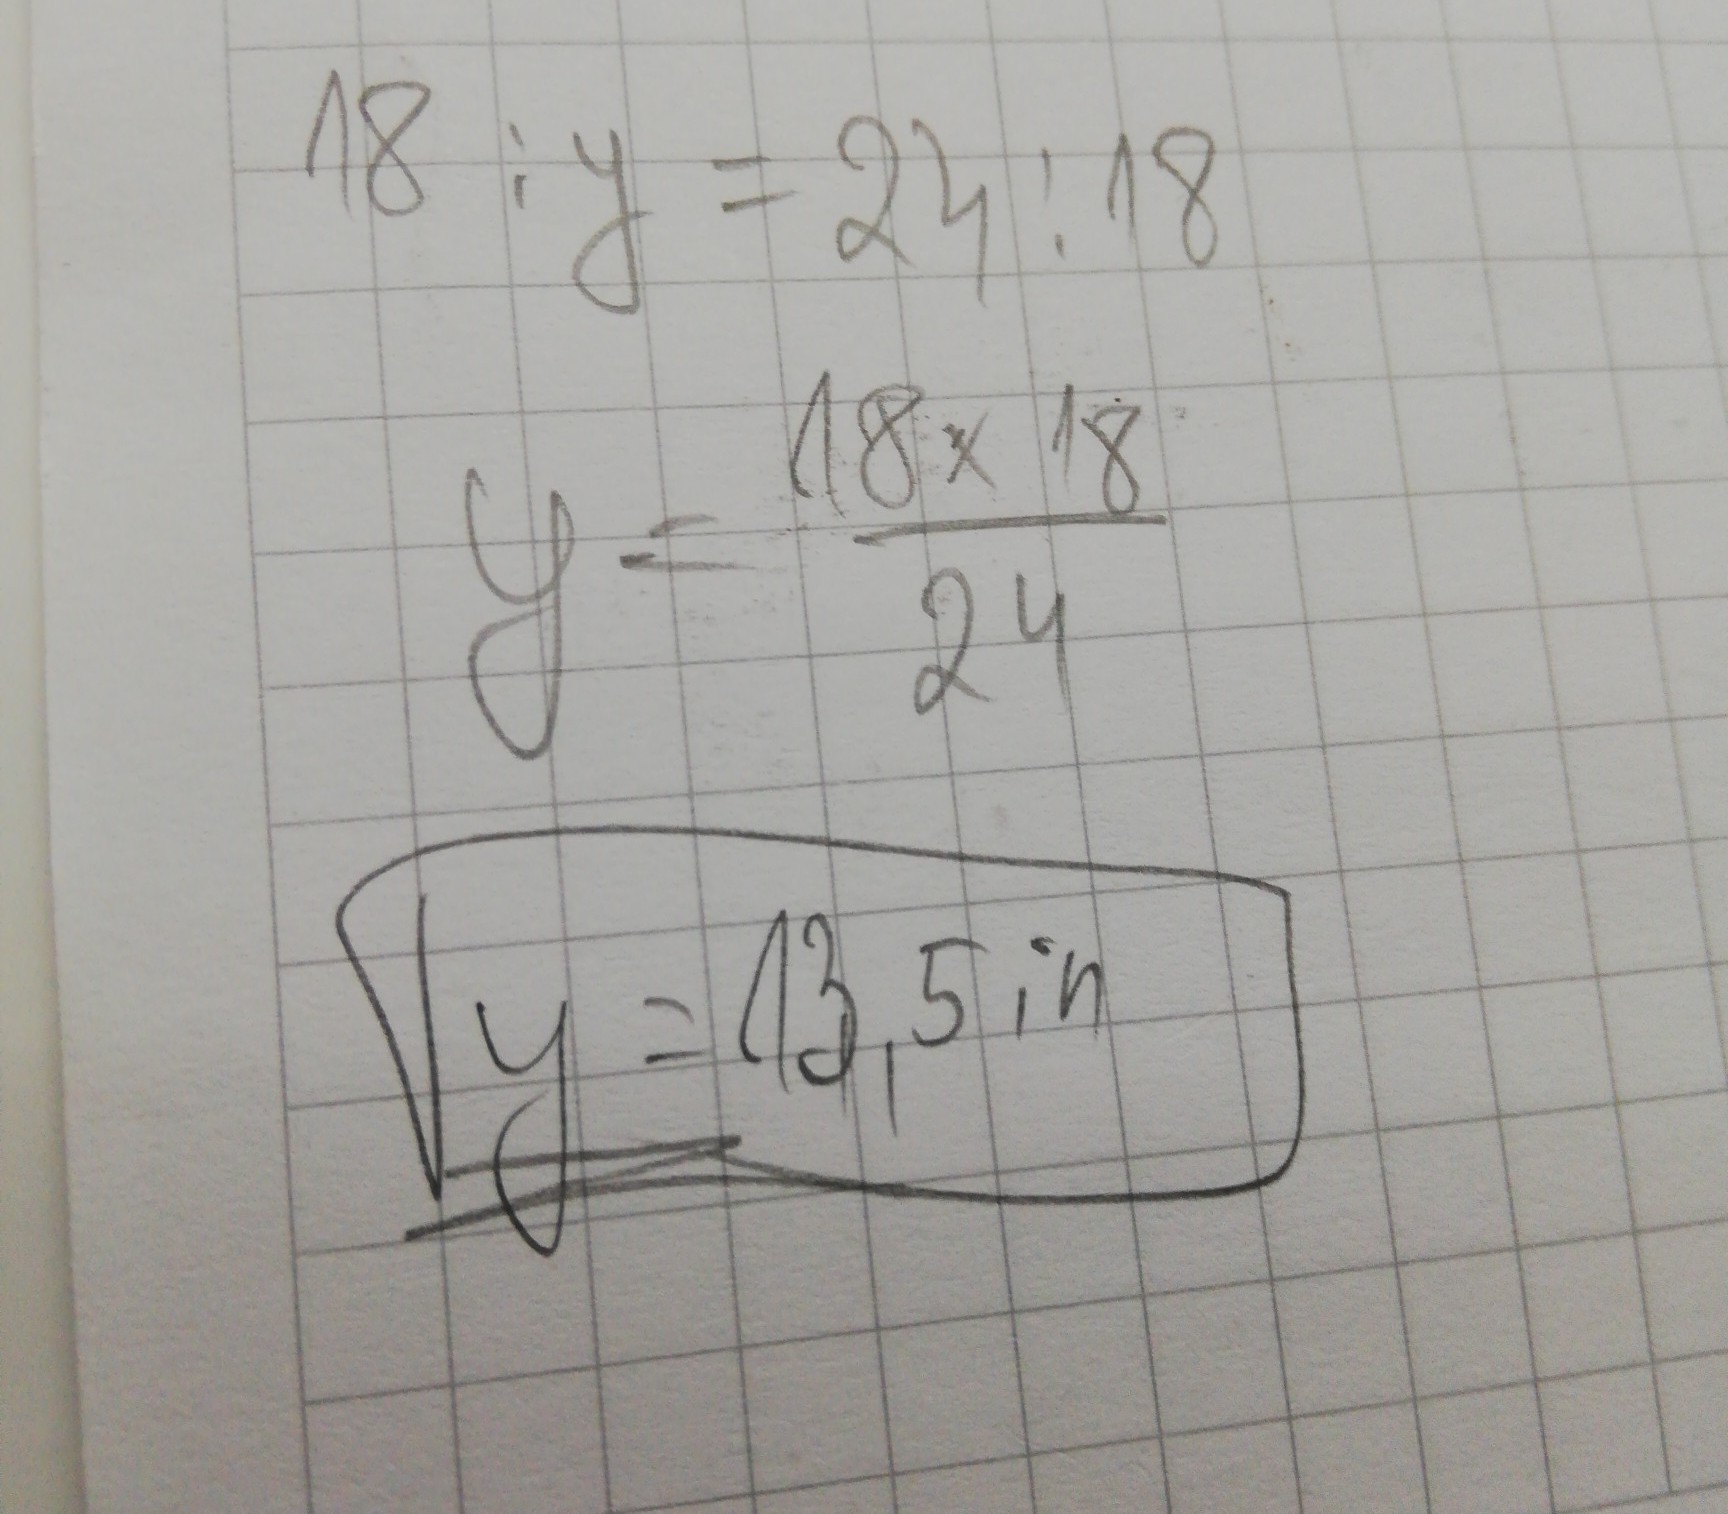 18 : y = 24 : 18
y = 18 x 18
24
y = 13,5 in